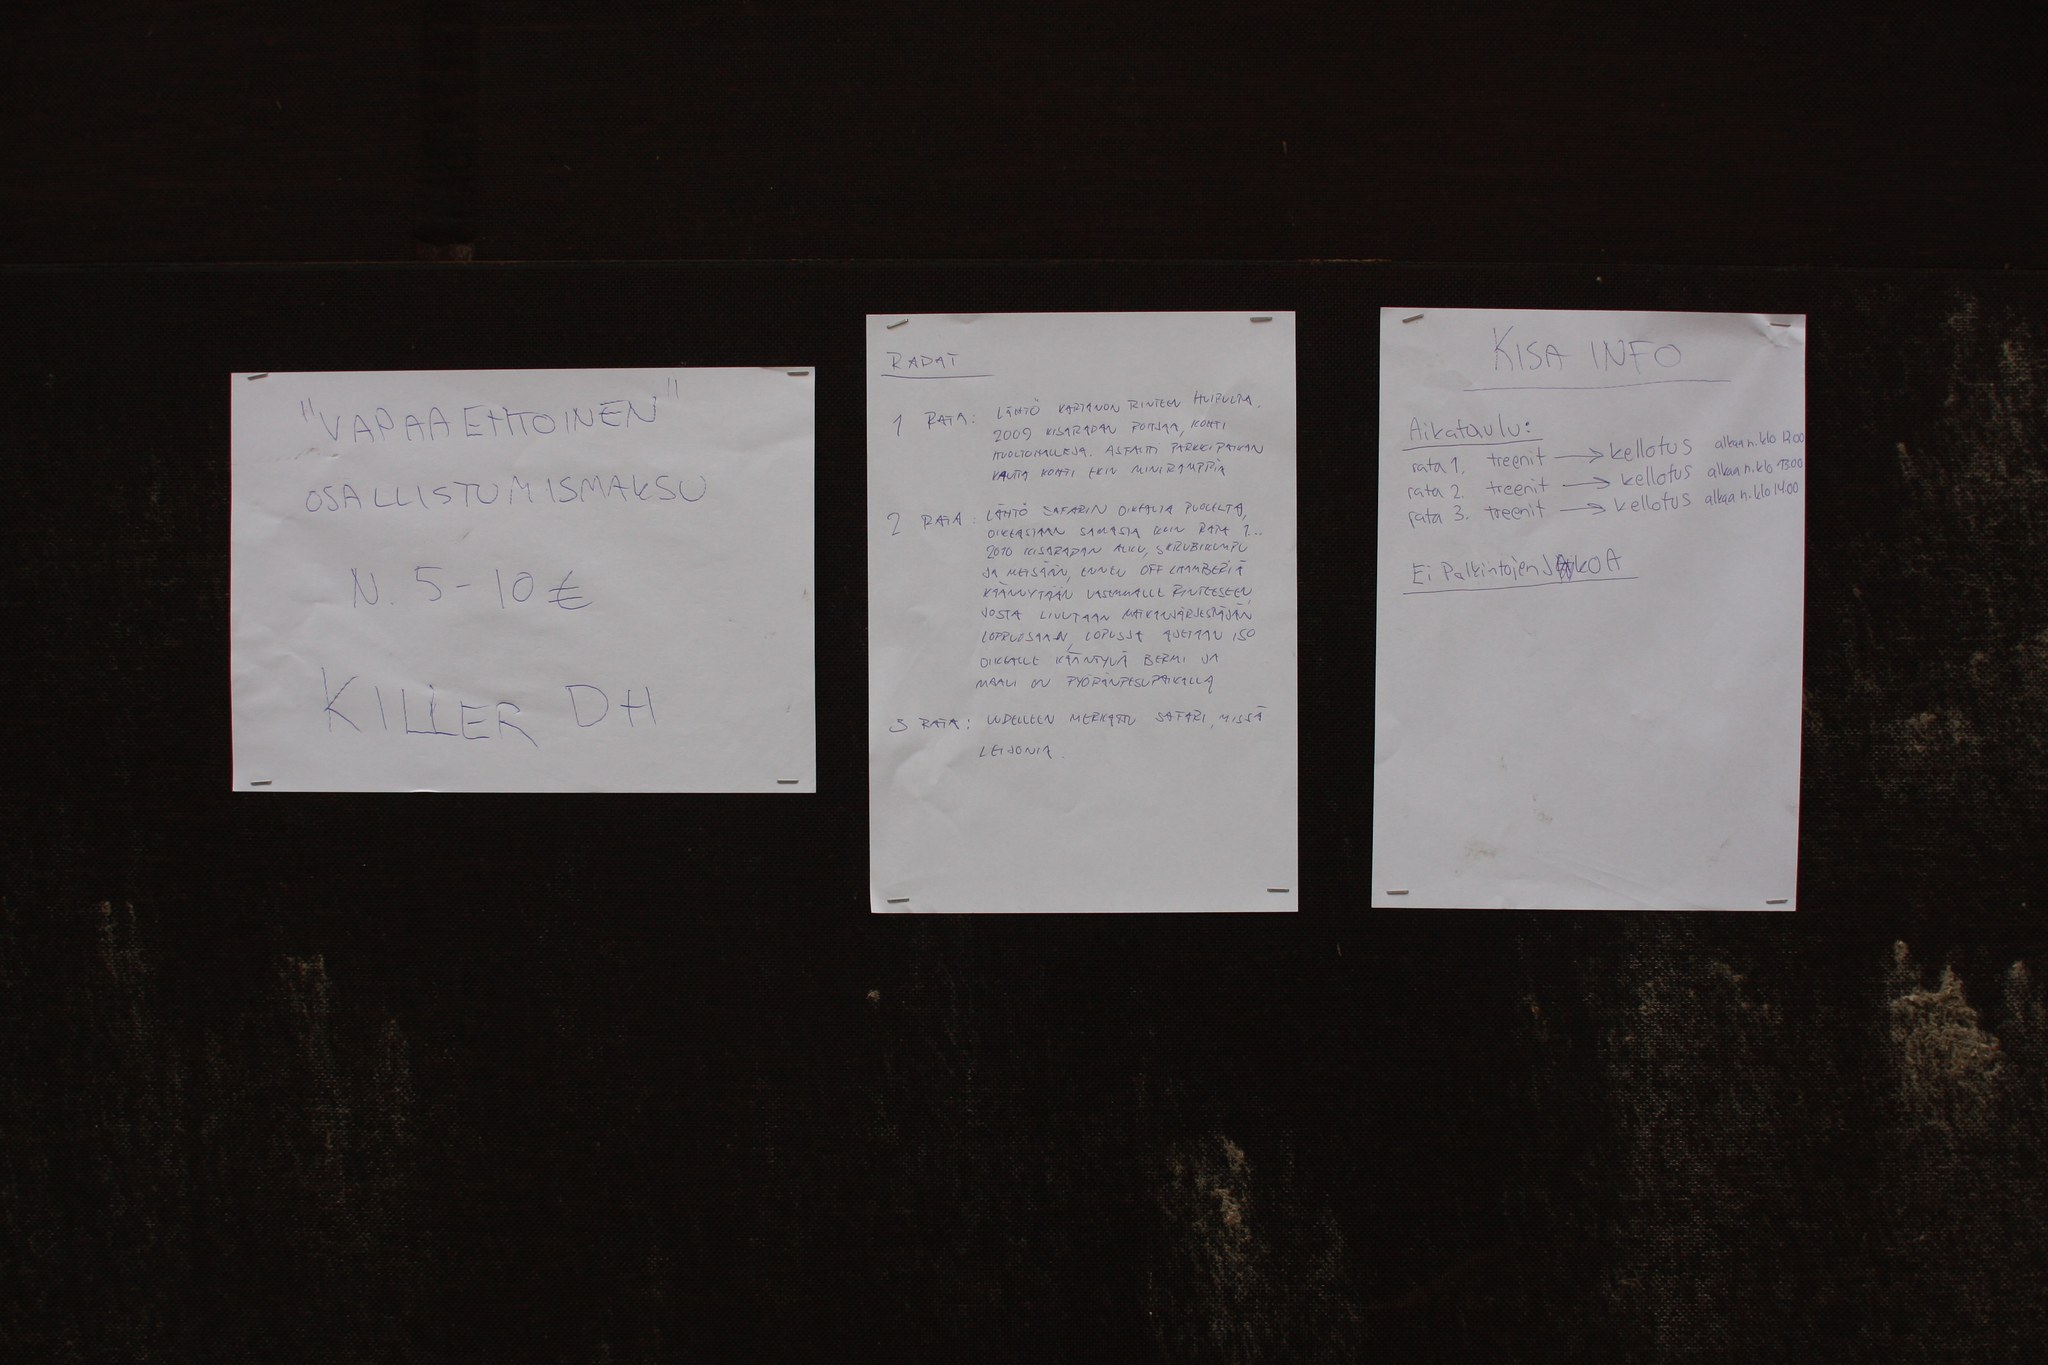 "VAPAAEHTOINEN"
OSALLISTUMISMAKSU
N. 5-10 €
KILLER DH
RADAT
1 RATA: LÄHTÖ KARTANON RINTEEN HUIPULTA.
2009 KISARADAN POHJAA, KOHTI
HUOLTOHALLEJA. ASFALTTI PARKKIPAIKAN
KAUTTA KOHTI EKIN MINIRAMPPIA
2 RATA: LÄHTÖ SAFARIN OIKEALTA PUOLELTA,
OIKEASTAAN SAMASTA KUIN RATA 1...
2010 KISARADAN ALKU, SKRUBIKUMPU
JA METSÄÄN, ENNEN OFF CAMBERIÄ
KÄÄNNYTÄÄN VASEMMALLE RINTEESEEN,
JOSTA LIUUTAAN MATKANJÄRJESTÄJÄN
LOPPUOSAAN, LOPUSSA AJETAAN ISO
OIKEALLE KÄÄNTYVÄ BERMI JA
MAALI ON PYÖRÄNPESUPAIKALLA
3 RATA: UUDELLEEN MERKATTU SAFARI, MISSÄ
LEIJONIA.
KISA INFO
Aikataulu:
rata 1. treenit → kellotus alkaa n. klo 1200
rata 2. treenit → kellotus alkaa n. klo 1300
rata 3. treenit → kellotus alkaa n. klo 1400
Ei PalkintojenJAKOA